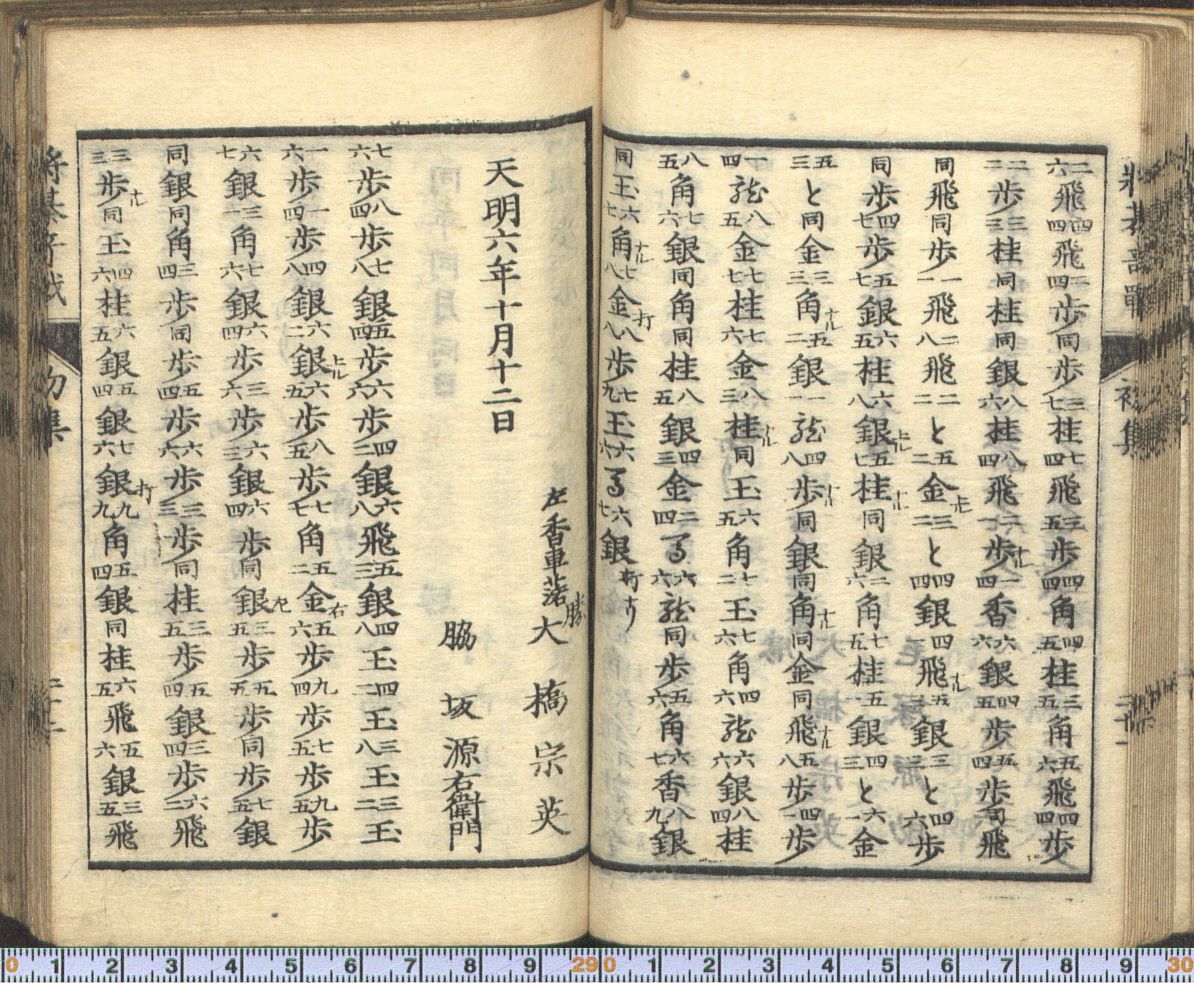 二六飛四四飛二四歩同歩三七桂七四飛三五歩四四角四五桂三五角五六飛四四歩
二二歩三三桂同桂同銀八六桂八四飛二一歩ナル一四香六六銀四五歩五四歩同飛
同飛同歩一一飛二八飛二二と五二金左三二と四四銀四一飛ナル五五銀三三と四六歩
同歩四七歩五六銀六五桂六八銀上ル五七桂ナル同銀二六角七五桂五一銀四三と六一金
五三と同金三三角ナル五二銀一一龍四八歩ナル同銀同角ナル同金同飛ナル五八歩四一歩
一四龍八五金七七桂七六金八三桂ナル同玉六五角七二玉七六角四六龍六六銀八四桂
八五角七六銀同角同桂八五銀四三金二四馬六六龍同歩五六角六七香八九銀
同玉六七角ナル七八金打八八歩七九玉六六馬六七銀打
天明六年十月十二日
左香車落 勝 大橋宗英
脇坂源右衛門
七六歩八四歩七八銀五四歩六六歩四二銀六八飛五三銀四八玉四二玉三八玉三二玉
一六歩一四歩四八銀六二銀上ル六五歩八五歩七七角五二金右五六歩九四歩七五歩九五歩
六七銀三一角七六銀六四歩三六歩六三銀六四歩同銀左三五歩五五歩同歩七五銀
同銀同角三四歩同歩五四歩六六歩三三歩同桂三五歩五四銀三四歩六二飛
三三歩ナル同玉四六桂六五銀五四銀七六銀打九九角五四銀同桂六五飛五六銀三五飛